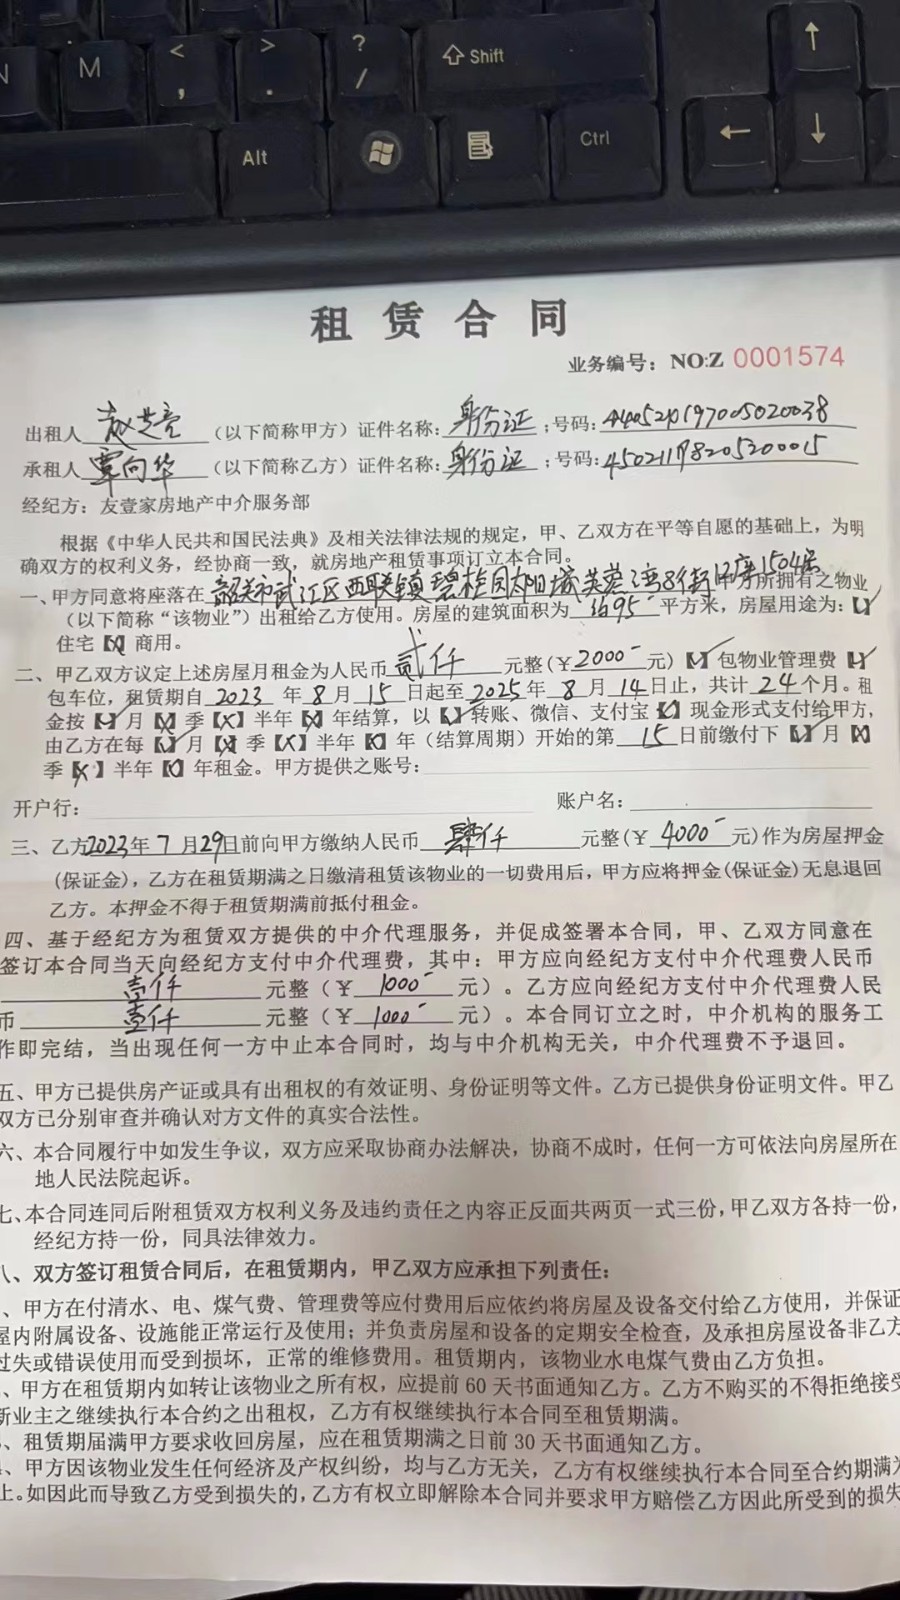 N
M
<
,
>
.
?
/
Shift
Alt
Ctrl
租赁合同
业务编号：NO:Z 0001574
出租人 （以下简称甲方）证件名称：身份证；号码：
承租人覃向华（以下简称乙方）证件名称：身份证；号码：
经纪方：友壹家房地产中介服务部
根据《中华人民共和国民法典》及相关法律法规的规定，甲、乙双方在平等自愿的基础上，为明
确双方的权利义务，经协商一致，就房地产租赁事项订立本合同。
一、甲方同意将座落在韶关市武江区西联镇碧桂园太阳城芙蓉湾8街 座1504房甲方所拥有之物业
（以下简称“该物业”）出租给乙方使用。房屋的建筑面积为 平方米，房屋用途为：【✓】
住宅【X】商用。
二、甲乙双方议定上述房屋月租金为人民币贰仟元整(￥2000-元)【✓】包物业管理费【✓】
包车位，租赁期自2023年8月15日起至2025年8月14日止，共计24个月。租
金按【✓】月【X】季【X】半年【X】年结算，以【✓】转账、微信、支付宝【X】现金形式支付给甲方，
由乙方在每【✓】月【X】季【X】半年【X】年（结算周期）开始的第15日前缴付下【✓】月【X】
季【X】半年【X】年租金。甲方提供之账号：
开户行： 账户名：
三、乙方2023年7月29日前向甲方缴纳人民币肆仟元整(￥4000-元)作为房屋押金
(保证金)，乙方在租赁期满之日缴清租赁该物业的一切费用后，甲方应将押金(保证金)无息退回
乙方。本押金不得于租赁期满前抵付租金。
四、基于经纪方为租赁双方提供的中介代理服务，并促成签署本合同，甲、乙双方同意在
签订本合同当天向经纪方支付中介代理费，其中：甲方应向经纪方支付中介代理费人民币
壹仟元整（￥1000-元）。乙方应向经纪方支付中介代理费人民
币壹仟元整（￥1000-元）。本合同订立之时，中介机构的服务工
作即完结，当出现任何一方中止本合同时，均与中介机构无关，中介代理费不予退回。
五、甲方已提供房产证或具有出租权的有效证明、身份证明等文件。乙方已提供身份证明文件。甲乙
双方已分别审查并确认对方文件的真实合法性。
六、本合同履行中如发生争议，双方应采取协商办法解决，协商不成时，任何一方可依法向房屋所在
地人民法院起诉。
七、本合同连同后附租赁双方权利义务及违约责任之内容正反面共两页一式三份，甲乙双方各持一份，
经纪方持一份，同具法律效力。
八、双方签订租赁合同后，在租赁期内，甲乙双方应承担下列责任：
、甲方在付清水、电、煤气费、管理费等应付费用后应依约将房屋及设备交付给乙方使用，并保证
屋内附属设备、设施能正常运行及使用；并负责房屋和设备的定期安全检查，及承担房屋设备非乙方
过失或错误使用而受到损坏，正常的维修费用。租赁期内，该物业水电煤气费由乙方负担。
、甲方在租赁期内如转让该物业之所有权，应提前60天书面通知乙方。乙方不购买的不得拒绝接受
新业主之继续执行本合约之出租权，乙方有权继续执行本合同至租赁期满。
、租赁期届满甲方要求收回房屋，应在租赁期满之日前30天书面通知乙方。
、甲方因该物业发生任何经济及产权纠纷，均与乙方无关，乙方有权继续执行本合同至合约期满为
止。如因此而导致乙方受到损失的，乙方有权立即解除本合同并要求甲方赔偿乙方因此所受到的损失